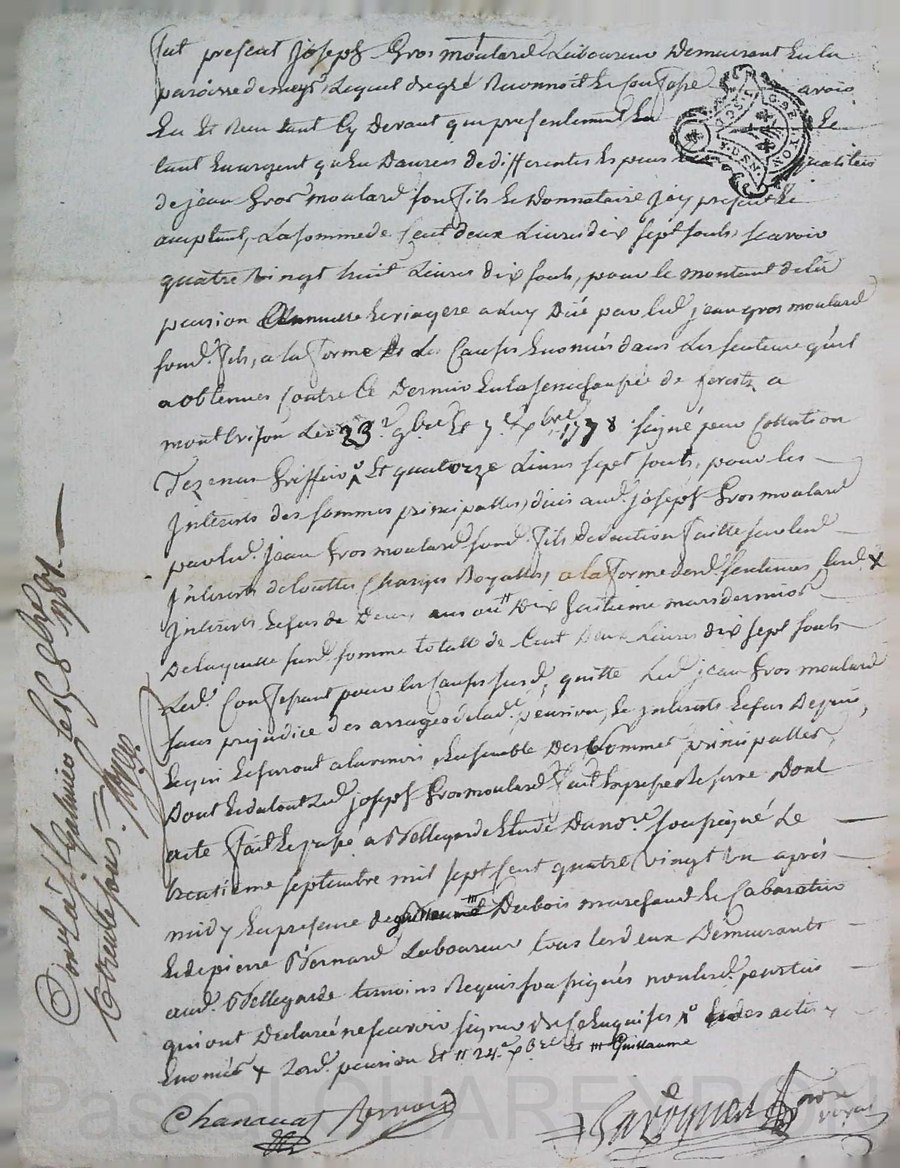 fut present Joseph Grosmoulard Laboureur Demeurant en la
paroisse de meys, Lequel de gré Reconnoit et Confesse avoir
Eu et Receu tant Cy Devant que presentement En et
tant En argent qu'En Danrées de differentes Especes qualités
de jean Gros moulard son fils et Donnataire Icy present et
acceptant, La somme de Cent deux Livres dix sept souls, scavoir
quatre vingt huit Livres dix souls, pour le montant de la
pension annuelle et viagere a Luy Düe par led. jean gros moulard
sond. fils, a la forme et des Causes Enoncées dans les sentences qu'il
a obtenues Contre Ce Dernier En la senechaussée de forests a
montbrison Les 23. 9bre et 7e. xbre 1778 signé pour Collation
Tezenas Greffier, Et quatorze Livres sept souls, pour les
Interests des sommes principalles, dues aud. joseph Grosmoulard
par led. Jean Gros moulard sond. fils Deduction faitte sur lesd.
Interests de touttes Charges Royalles, a la forme desd. sentences, lesd. x
Interests Echus de Deux ans au Dix huitieme mars dernier
De laquelle susd. somme totalle de Cent Deux Livres dix sept souls
Led. Confessant pour les Causes susd. quitte Led. jean Gros moulard
sans prejudice des arrages de lad. pension, et Interests Echus Depuis,
et qui Echeront a lavenir, Ensemble Des sommes principalles,
Dont et du tout Led. joseph Grosmoulard fait Expresse reserve Dont
acte fait et passé a Bellegarde Etude Du nore. soussigné Le
trentieme septembre mil sept cent quatre vingt un après
midy En presence de guillaume Dubois marchand et Cabaretier
et de pierre Bernard Laboureur tous les deux Demeurants
aud. Bellegarde temoins Requis soussignés non lesd. parties
qui ont Declaré ne scavoir signer de ce Enquises et des actes
Enoncés x 2 ord. pension et " 24. xbre et ''' Guillaume
Bernard
Controlé a St. Galmier le 8. 8bre 1781.
trente sous.